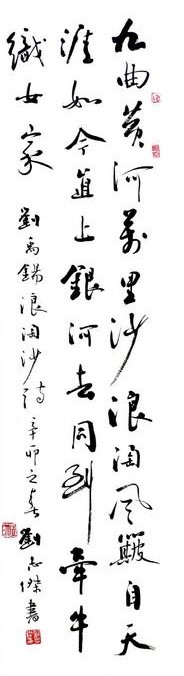 九曲黄河萬里沙浪淘風簸自天
涯如今直上銀河去同到牽牛
織女家
劉禹錫浪淘沙詩辛卯之春劉志傑書